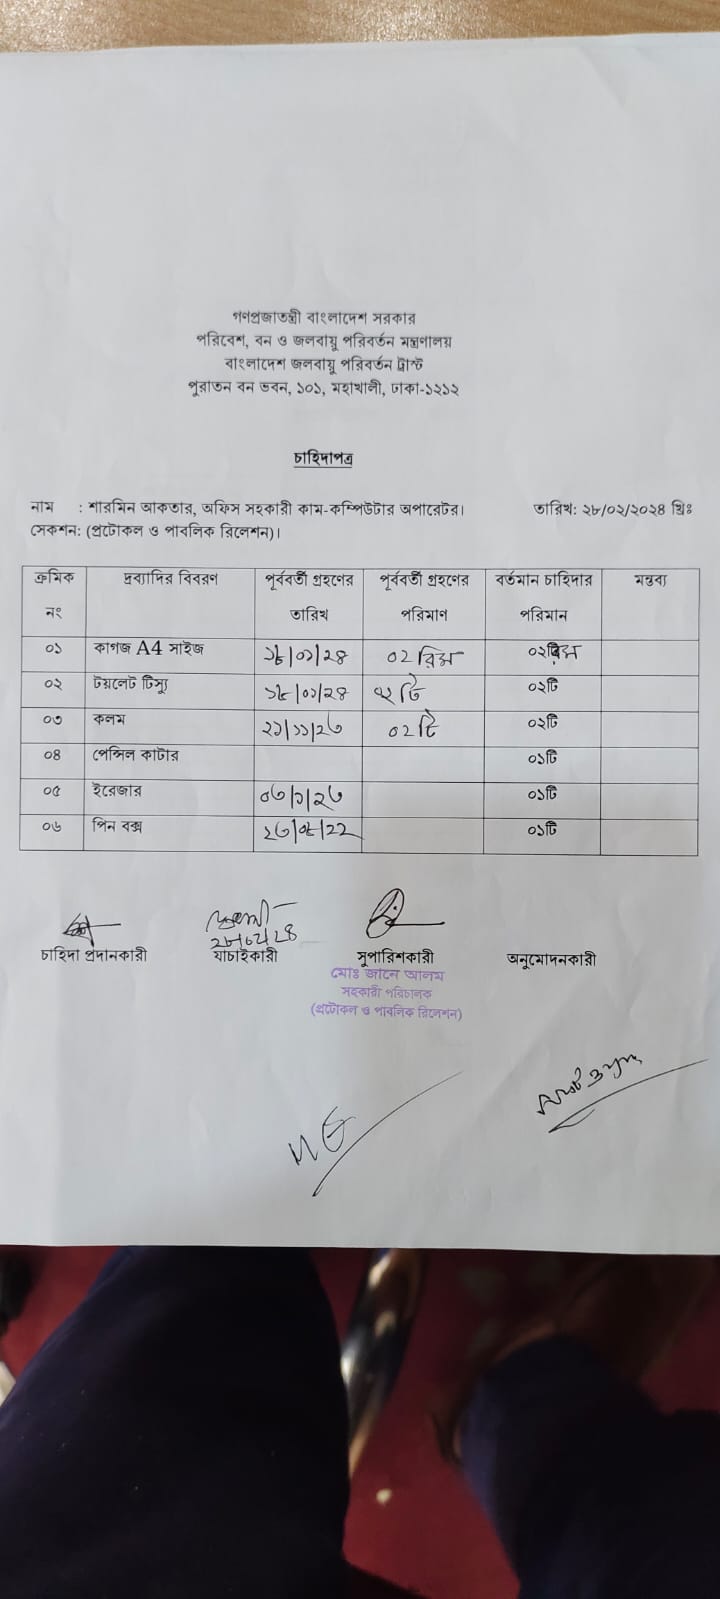 গণপ্রজাতন্ত্রী বাংলাদেশ সরকার
পরিবেশ, বন ও জলবায়ু পরিবর্তন মন্ত্রণালয়
বাংলাদেশ জলবায়ু পরিবর্তন ট্রাস্ট
পুরাতন বন ভবন, ১০১, মহাখালী, ঢাকা-১২১২
চাহিদাপত্র
নাম : শারমিন আকতার, অফিস সহকারী কাম-কম্পিউটার অপারেটর। তারিখ: ২৮/০২/২০২৪ খ্রিঃ
সেকশন: (প্রটোকল ও পাবলিক রিলেশন)।
ক্রমিক নং দ্রব্যাদির বিবরণ পূর্ববর্তী গ্রহণের তারিখ পূর্ববর্তী গ্রহণের পরিমাণ বর্তমান চাহিদার পরিমান মন্তব্য
০১ কাগজ A4 সাইজ ০২ রিম ০২ রিম
০২ টয়লেট টিস্যু ০২টি
০৩ কলম ২১/১১/২৩ ০২টি ০২টি
০৪ পেন্সিল কাটার ০১টি
০৫ ইরেজার ০১টি
০৬ পিন বক্স ০১টি
২৮/০২/২৪
চাহিদা প্রদানকারী যাচাইকারী সুপারিশকারী অনুমোদনকারী
মোঃ জানে আলম
সহকারী পরিচালক
(প্রটোকল ও পাবলিক রিলেশন)